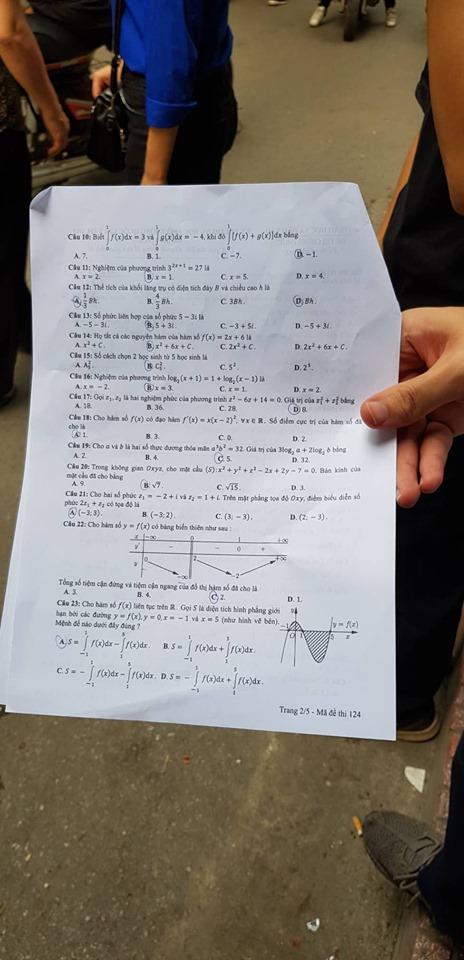 Câu 10: Biết ∫₀¹ f(x)dx = 3 và ∫₀¹ g(x)dx = −4, khi đó ∫₀¹ [f(x) + g(x)]dx bằng
A. 7. B. 1. C. −7. D. −1.
Câu 11: Nghiệm của phương trình 3²ˣ⁺¹ = 27 là
A. x = 2. B. x = 1. C. x = 5. D. x = 4.
Câu 12: Thể tích của khối lăng trụ có diện tích đáy B và chiều cao h là
A. 1/3 Bh. B. 4/3 Bh. C. 3Bh. D. Bh.
Câu 13: Số phức liên hợp của số phức 5 − 3i là
A. −5 − 3i. B. 5 + 3i. C. −3 + 5i. D. −5 + 3i.
Câu 14: Họ tất cả các nguyên hàm của hàm số f(x) = 2x + 6 là
A. x² + C. B. x² + 6x + C. C. 2x² + C. D. 2x² + 6x + C.
Câu 15: Số cách chọn 2 học sinh từ 5 học sinh là
A. A₅². B. C₅². C. 5². D. 2⁵.
Câu 16: Nghiệm của phương trình log₂(x + 1) = 1 + log₂(x − 1) là
A. x = −2. B. x = 3. C. x = 1. D. x = 2.
Câu 17: Gọi z₁, z₂ là hai nghiệm phức của phương trình z² − 6z + 14 = 0. Giá trị của z₁² + z₂² bằng
A. 18. B. 36. C. 28. D. 8.
Câu 18: Cho hàm số f(x) có đạo hàm f'(x) = x(x − 2)², ∀x ∈ ℝ. Số điểm cực trị của hàm số đã
cho là
A. 1. B. 3. C. 0. D. 2.
Câu 19: Cho a và b là hai số thực dương thỏa mãn a³b² = 32. Giá trị của 3log₂ a + 2log₂ b bằng
A. 2. B. 4. C. 5. D. 32.
Câu 20: Trong không gian Oxyz, cho mặt cầu (S): x² + y² + z² − 2x + 2y − 7 = 0. Bán kính của
mặt cầu đã cho bằng
A. 9. B. √7. C. √15. D. 3.
Câu 21: Cho hai số phức z₁ = −2 + i và z₂ = 1 + i. Trên mặt phẳng tọa độ Oxy, điểm biểu diễn số
phức 2z₁ + z₂ có tọa độ là
A. (−3; 3). B. (−3; 2). C. (3; −3). D. (2; −3).
Câu 22: Cho hàm số y = f(x) có bảng biến thiên như sau :
x −∞ 0 1 +∞
y' − − 0 +
y 0 −∞ 2 −2 +∞
Tổng số tiệm cận đứng và tiệm cận ngang của đồ thị hàm số đã cho là
A. 3. B. 4. C. 2. D. 1.
Câu 23: Cho hàm số f(x) liên tục trên ℝ. Gọi S là diện tích hình phẳng giới
hạn bởi các đường y = f(x), y = 0, x = −1 và x = 5 (như hình vẽ bên).
Mệnh đề nào dưới đây đúng ?
y
−1 O 1 5 x
y = f(x)
A. S = ∫₋₁¹ f(x)dx − ∫₁⁵ f(x)dx. B. S = ∫₋₁¹ f(x)dx + ∫₁⁵ f(x)dx.
C. S = −∫₋₁¹ f(x)dx − ∫₁⁵ f(x)dx. D. S = −∫₋₁¹ f(x)dx + ∫₁⁵ f(x)dx.
Trang 2/5 - Mã đề thi 124